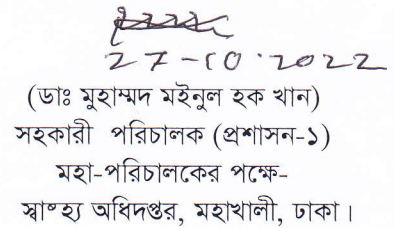 27-10-2022
(ডাঃ মুহাম্মদ মইনুল হক খান)
সহকারী পরিচালক (প্রশাসন-১)
মহা-পরিচালকের পক্ষে-
স্বাস্থ্য অধিদপ্তর, মহাখালী, ঢাকা।